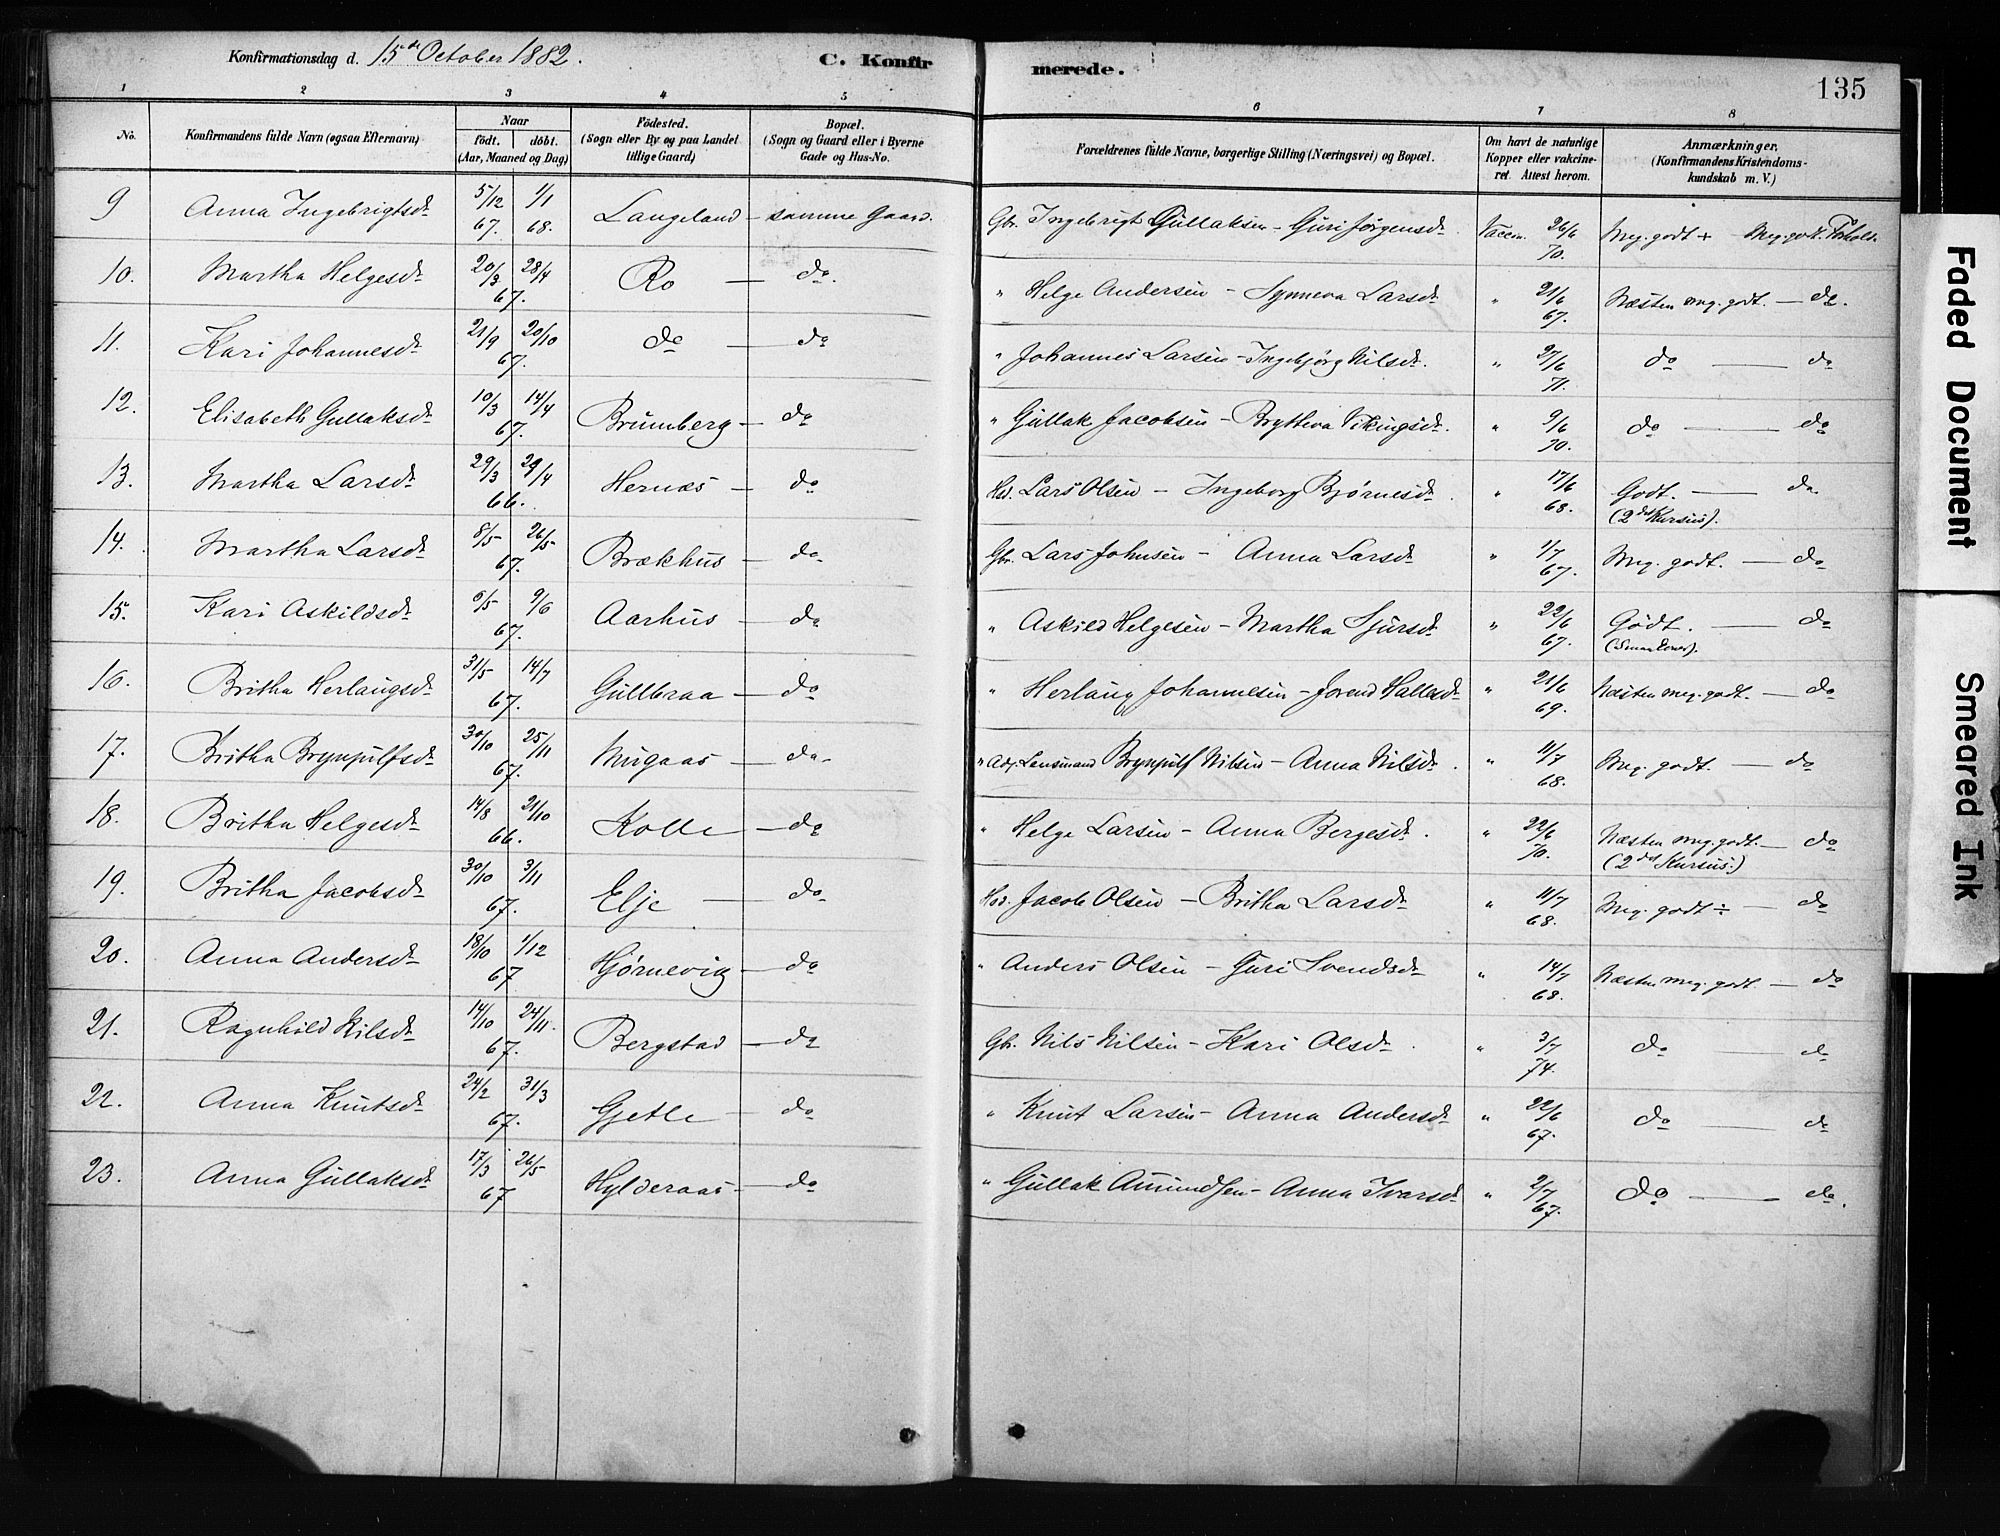 Konfirmationsdag d. 15de October 1882.
C. Konfir merede.
135
1 2 3 4 5 6 7 8
No.
Konfirmandens fulde Navn (ogsaa Efternavn)
Naar
födt. döbt.
(Aar, Maaned og Dag)
Födested.
(Sogn eller By og paa Landet
tillige Gaard)
Bopæl.
(Sogn og Gaard eller i Byerne
Gade og Hus-No.
Forældrenes fulde Navne, borgerlige Stilling (Næringsvei) og Bopæl.
Om havt de naturlige
Kopper eller vakcine-
ret. Attest herom.
Anmærkninger.
(Konfirmandens Kristendoms-
kundskab m. V.)
9 Anna Ingebrigtsdr 5/12 67. 1/1 68. Langeland – samme Gaard. Gbr. Ingebrigt Gullaksen – Guri Jørgensdr. Vaccin. 26/6 70. Meg. godt + Meg. godt Forhold.
10. Martha Helgesdr 20/3 28/4 67. Ro – do. " Helge Andersen – Synneva Larsdr " 21/6 67. Næsten meg. godt. – do.
11. Kari Johannesdr 21/9 20/10 67. do – do " Johannes Larsen – Ingebjørg Nilsdr. " 27/6 71. do – do
12. Elisabeth Gullaksdr 10/3 14/4 67. Brunberg – do " Gullak Jacobsen – Brytteva Vikingsdr. " 9/6 70. do – do
13. Martha Larsdr 29/3 29/4 66. Hernæs – do Hsd. Lars Olsen – Ingeborg Bjørnesdr. " 17/6 68. Godt. – do.
(2det Kursus).
14. Martha Larsdr 8/5 26/5 67. Brækhus – do. Gbr. Lars Johnsen – Anna Larsdr " 1/7 67. Meg. godt. – do
15. Kari Askildsdr 5/5 9/6 67. Aarhus – do " Askild Helgesen – Martha Sjursdr " 22/6 67. Godt. – do
16. Britha Herlaugsdr 31/5 14/7 67. Gullbraa – do " Herlaug Johannesen – Jorend Hallesdr " 21/6 69. Næsten meg. godt. – do
17. Britha Brynjulfsdr 30/10 25/11 67. Mugaas – do. " Lensmand Brynjulf Nilsen – Anna Nilsdr. " 11/7 68. Meg. godt. – do
18. Britha Helgesdr 14/8 21/10 66. Kolle – do " Helge Larsen – Anna Bergesdr. " 22/6 70. Næsten meg. godt. – do
(2det Kursus.)
19. Britha Jacobsdr 30/10 3/11 67. Elje – do Hsd. Jacob Olsen – Britha Larsdr " 11/7 68. Meg. godt ÷ – do
20. Anna Andersdr 18/10 1/12 67 Hjørnevig – do " Anders Olsen – Guri Svendsdr " 14/7 68. Næsten meg. godt – do
21. Ragnhild Nilsdr 14/10 24/11. 67. Bergstad – do Gbr. Nils Nilsen – Kari Olsdr. " 3/7 74. do – do
22. Anna Knutsdr 24/2 31/3 67. Gjetle – do " Knut Larsen – Anna Andersdr " 22/6 67. do – do
23. Anna Gullaksdr 17/3 26/5 67 Hylderaas – do " Gullak Amundsen – Anna Ivarsdr " 2/7 67. do – do.
Faded Document
Smeared Ink